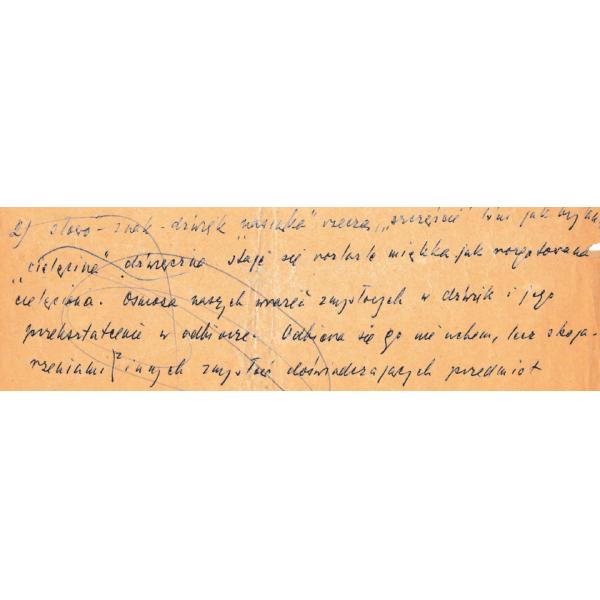 2) słowo - znak - dźwięk "nasiąka" rzeczą, "szczęście" lśni jak
"cielęcina" dźwięczna staje się rozlazła miękka jak rozgotowana
cielęcina. Osmoza naszych wrażeń zmysłowych w dźwięk i jego
przekształcenie w odbiorze. Odbiera się go nie uchem, lecz skoja-
rzeniami z innych zmysłów doświadczających przedmiot